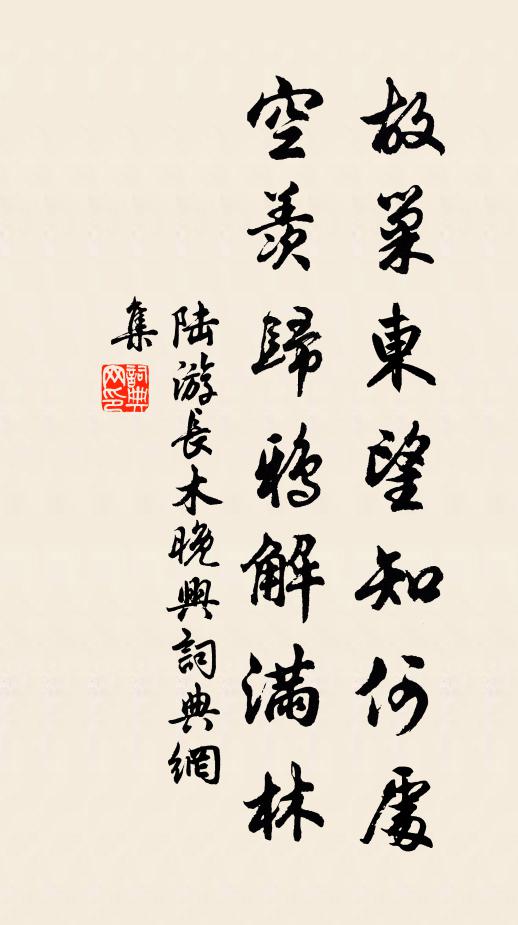 故巢東望知何處
空羨歸鴉解滿林
陸游長木晚興詞典網
集
詞典
网印